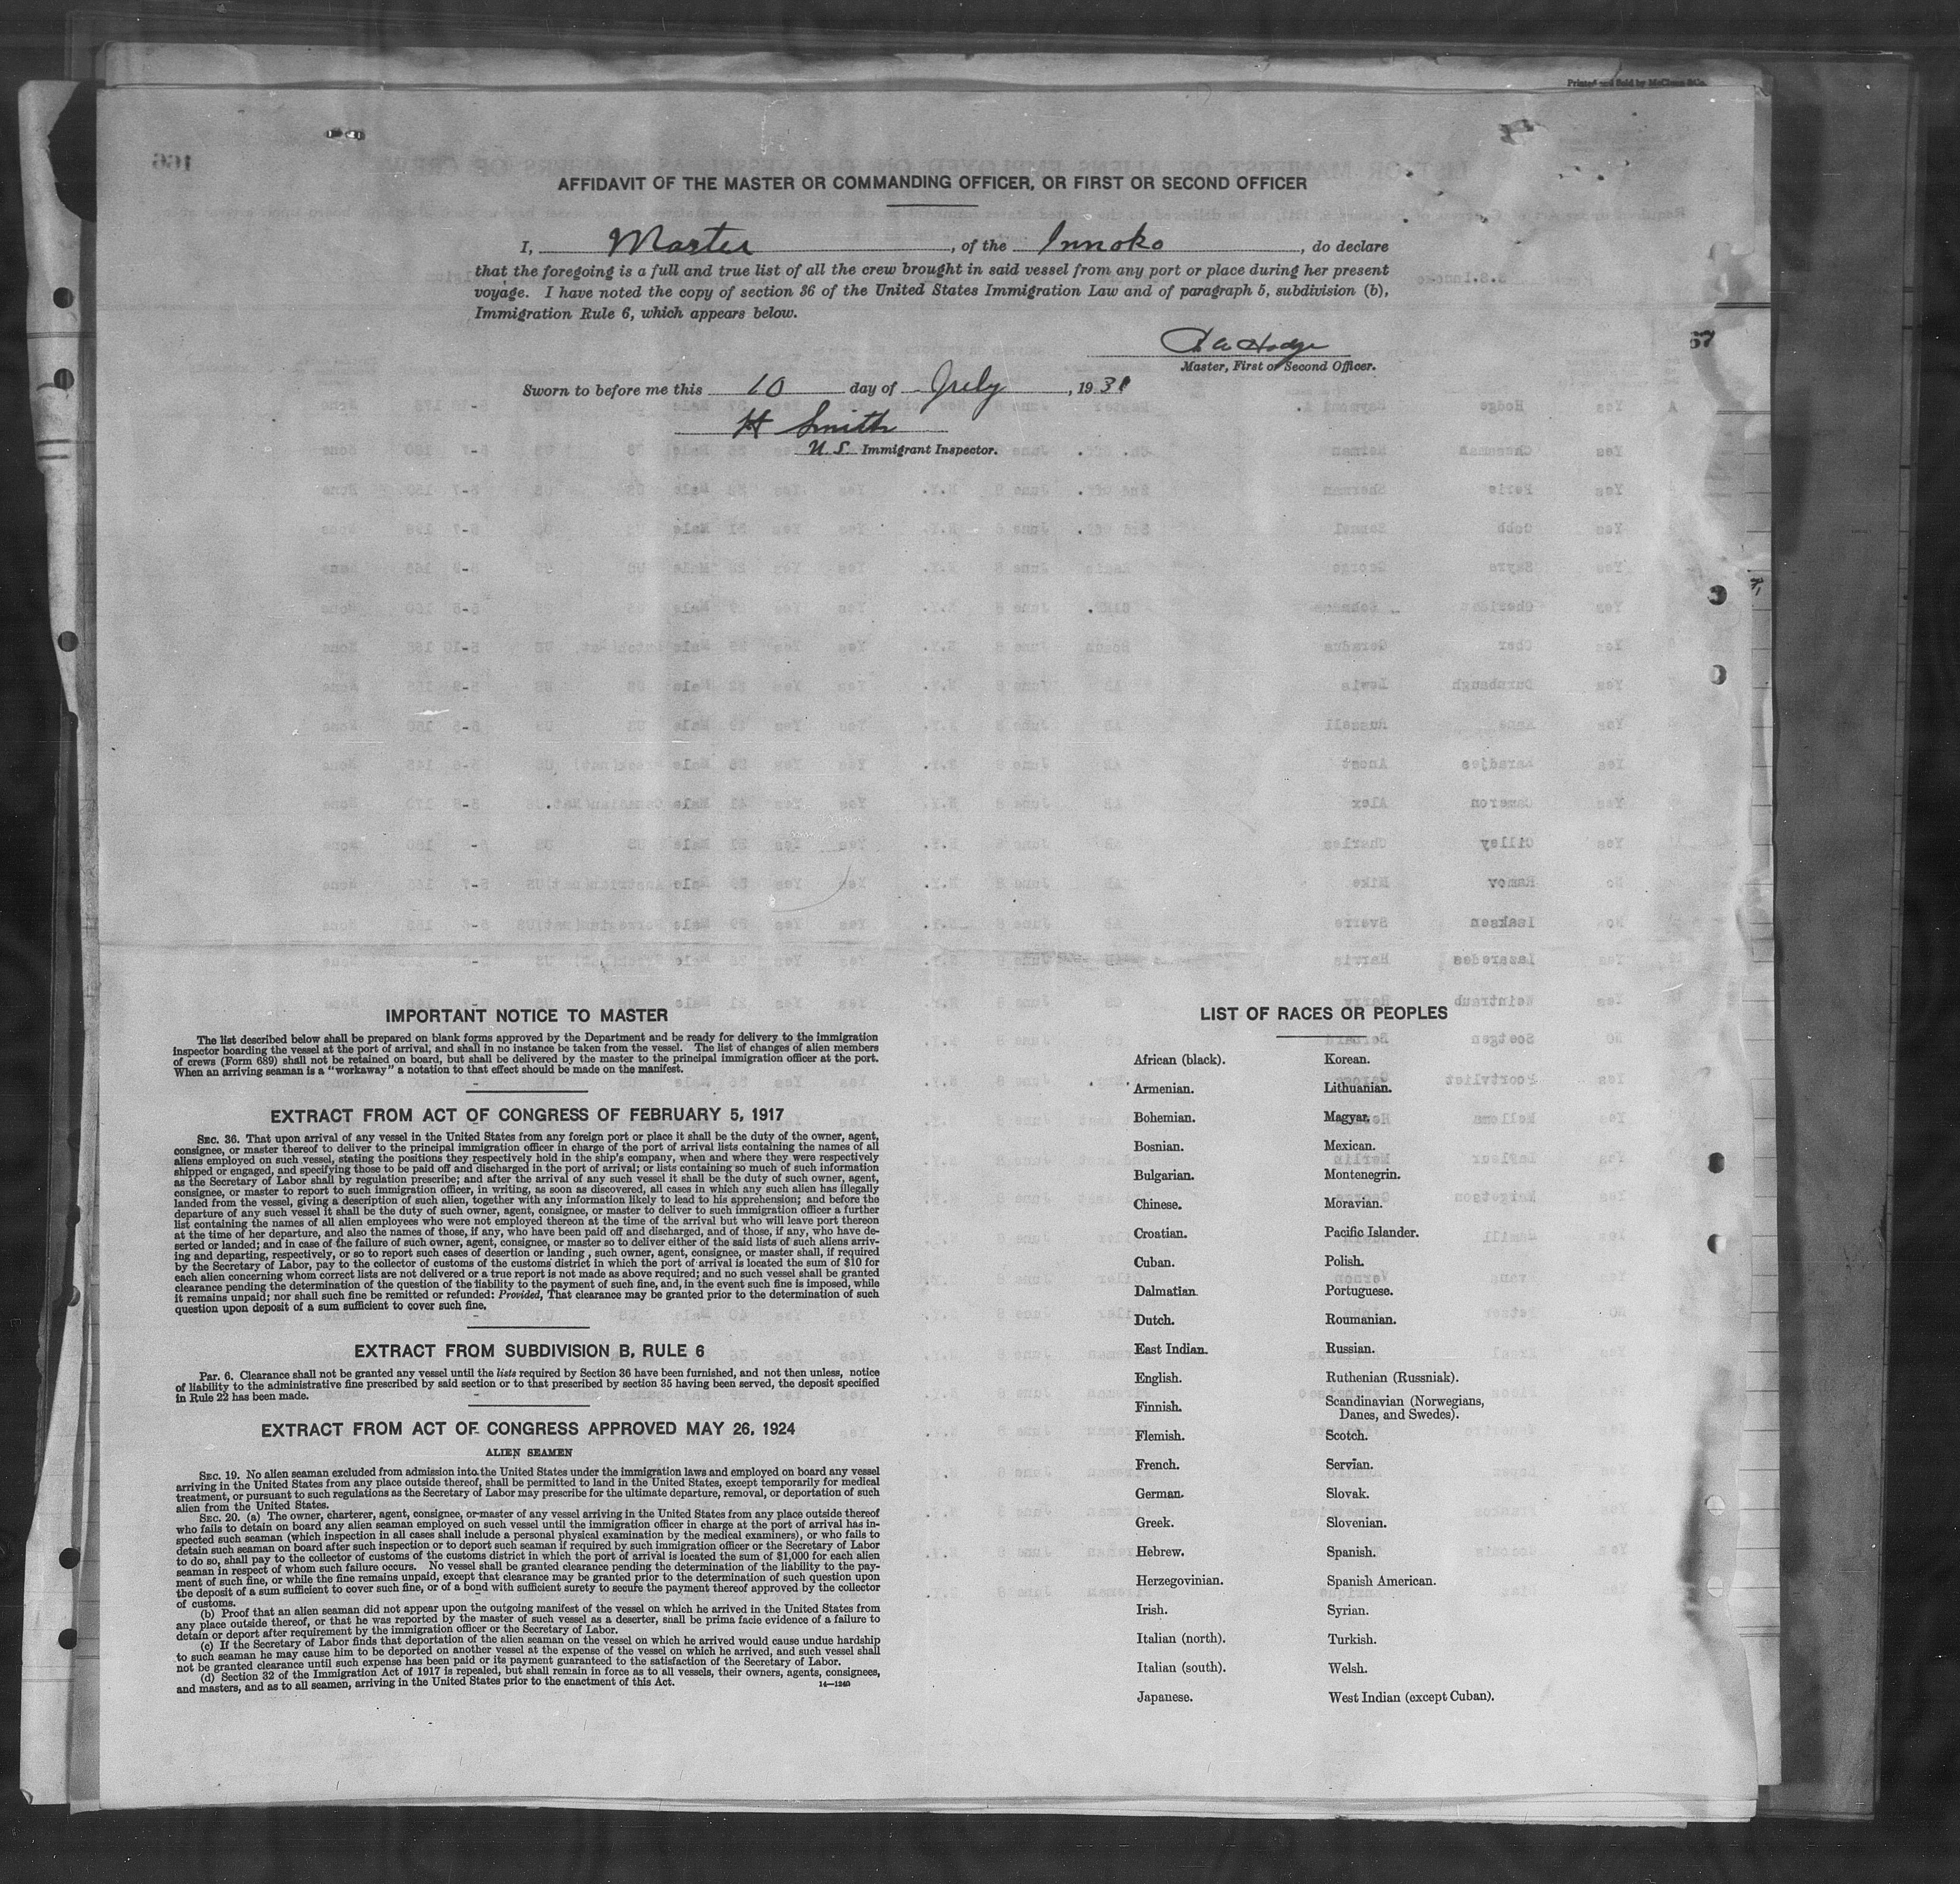 Printed and Sold by McClunn &Co.
166
AFFIDAVIT OF THE MASTER OR COMMANDING OFFICER, OR FIRST OR SECOND OFFICER
I, Master, of the Innoko, do declare
that the foregoing is a full and true list of all the crew brought in said vessel from any port or place during her present
voyage. I have noted the copy of section 36 of the United States Immigration Law and of paragraph 5, subdivision (b),
Immigration Rule 6, which appears below.
R A Hodge
Master, First or Second Officer.
67
Sworn to before me this 10 day of July, 1931
H Smith
U.S. Immigrant Inspector.
IMPORTANT NOTICE TO MASTER
The list described below shall be prepared on blank forms approved by the Department and be ready for delivery to the immigration
inspector boarding the vessel at the port of arrival, and shall in no instance be taken from the vessel. The list of changes of alien members
of crews (Form 689) shall not be retained on board, but shall be delivered by the master to the principal immigration officer at the port.
When an arriving seaman is a "workaway" a notation to that effect should be made on the manifest.
EXTRACT FROM ACT OF CONGRESS OF FEBRUARY 5, 1917
SEC. 36. That upon arrival of any vessel in the United States from any foreign port or place it shall be the duty of the owner, agent,
consignee, or master thereof to deliver to the principal immigration officer in charge of the port of arrival lists containing the names of all
aliens employed on such vessel, stating the positions they respectively hold in the ship's company, when and where they were respectively
shipped or engaged, and specifying those to be paid off and discharged in the port of arrival; or lists containing so much of such information
as the Secretary of Labor shall by regulation prescribe; and after the arrival of any such vessel it shall be the duty of such owner, agent,
consignee, or master to report to such immigration officer, in writing, as soon as discovered, all cases in which any such alien has illegally
landed from the vessel, giving a description of such alien, together with any information likely to lead to his apprehension; and before the
departure of any such vessel it shall be the duty of such owner, agent, consignee, or master to deliver to such immigration officer a further
list containing the names of all alien employees who were not employed thereon at the time of the arrival but who will leave port thereon
at the time of her departure, and also the names of those, if any, who have been paid off and discharged, and of those, if any, who have de-
serted or landed; and in case of the failure of such owner, agent, consignee, or master so to deliver either of the said lists of such aliens arriv-
ing and departing, respectively, or so to report such cases of desertion or landing, such owner, agent, consignee, or master shall, if required
by the Secretary of Labor, pay to the collector of customs of the customs district in which the port of arrival is located the sum of $10 for
each alien concerning whom correct lists are not delivered or a true report is not made as above required; and no such vessel shall be granted
clearance pending the determination of the question of the liability to the payment of such fine, and, in the event such fine is imposed, while
it remains unpaid; nor shall such fine be remitted or refunded: Provided, That clearance may be granted prior to the determination of such
question upon deposit of a sum sufficient to cover such fine.
EXTRACT FROM SUBDIVISION B, RULE 6
Par. 6. Clearance shall not be granted any vessel until the lists required by Section 36 have been furnished, and not then unless, notice
of liability to the administrative fine prescribed by said section or to that prescribed by section 35 having been served, the deposit specified
in Rule 22 has been made.
EXTRACT FROM ACT OF CONGRESS APPROVED MAY 26, 1924
ALIEN SEAMEN
SEC. 19. No alien seaman excluded from admission into the United States under the immigration laws and employed on board any vessel
arriving in the United States from any place outside thereof, shall be permitted to land in the United States, except temporarily for medical
treatment, or pursuant to such regulations as the Secretary of Labor may prescribe for the ultimate departure, removal, or deportation of such
alien from the United States.
SEC. 20. (a) The owner, charterer, agent, consignee, or master of any vessel arriving in the United States from any place outside thereof
who fails to detain on board any alien seaman employed on such vessel until the immigration officer in charge at the port of arrival has in-
spected such seaman (which inspection in all cases shall include a personal physical examination by the medical examiners), or who fails to
detain such seaman on board after such inspection or to deport such seaman if required by such immigration officer or the Secretary of Labor
to do so, shall pay to the collector of customs of the customs district in which the port of arrival is located the sum of $1,000 for each alien
seaman in respect of whom such failure occurs. No vessel shall be granted clearance pending the determination of the liability to the pay-
ment of such fine, or while the fine remains unpaid, except that clearance may be granted prior to the determination of such question upon
the deposit of a sum sufficient to cover such fine, or of a bond with sufficient surety to secure the payment thereof approved by the collector
of customs.
(b) Proof that an alien seaman did not appear upon the outgoing manifest of the vessel on which he arrived in the United States from
any place outside thereof, or that he was reported by the master of such vessel as a deserter, shall be prima facie evidence of a failure to
detain or deport after requirement by the immigration officer or the Secretary of Labor.
(c) If the Secretary of Labor finds that deportation of the alien seaman on the vessel on which he arrived would cause undue hardship
to such seaman he may cause him to be deported on another vessel at the expense of the vessel on which he arrived, and such vessel shall
not be granted clearance until such expense has been paid or its payment guaranteed to the satisfaction of the Secretary of Labor.
(d) Section 32 of the Immigration Act of 1917 is repealed, but shall remain in force as to all vessels, their owners, agents, consignees,
and masters, and as to all seamen, arriving in the United States prior to the enactment of this Act.
14—1240
LIST OF RACES OR PEOPLES
African (black).
Armenian.
Bohemian.
Bosnian.
Bulgarian.
Chinese.
Croatian.
Cuban.
Dalmatian.
Dutch.
East Indian.
English.
Finnish.
Flemish.
French.
German.
Greek.
Hebrew.
Herzegovinian.
Irish.
Italian (north).
Italian (south).
Japanese.
Korean.
Lithuanian.
Magyar.
Mexican.
Montenegrin.
Moravian.
Pacific Islander.
Polish.
Portuguese.
Roumanian.
Russian.
Ruthenian (Russniak).
Scandinavian (Norwegians,
Danes, and Swedes).
Scotch.
Servian.
Slovak.
Slovenian.
Spanish.
Spanish American.
Syrian.
Turkish.
Welsh.
West Indian (except Cuban).